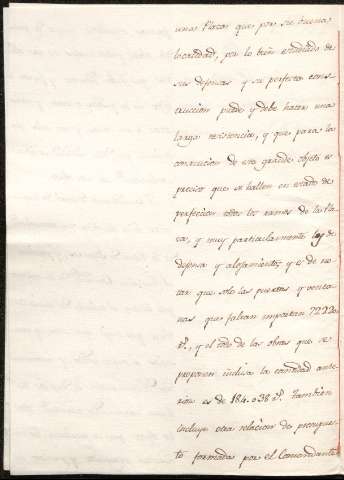 una Plaza que por su buena
localidad, por lo bien entendido de
sus defensas y su perfecta cons-
truccion puede y debe hacer una
larga resistencia, y que para la
consecucion de este grande objeto es
preciso que se hallen en estado de
perfeccion todos los ramos de la Pla-
za, y muy particularmente los de
defensa y alojamiento; y es de no-
tar que solo las puertas y venta-
nas que faltan importan 7220
r.^s, y el todo de las obras que se
proponen inclusa la cantidad ante-
rior es de 184.038 r.^s Tambien
incluye otra relacion de presupues-
to formada por el Comandante